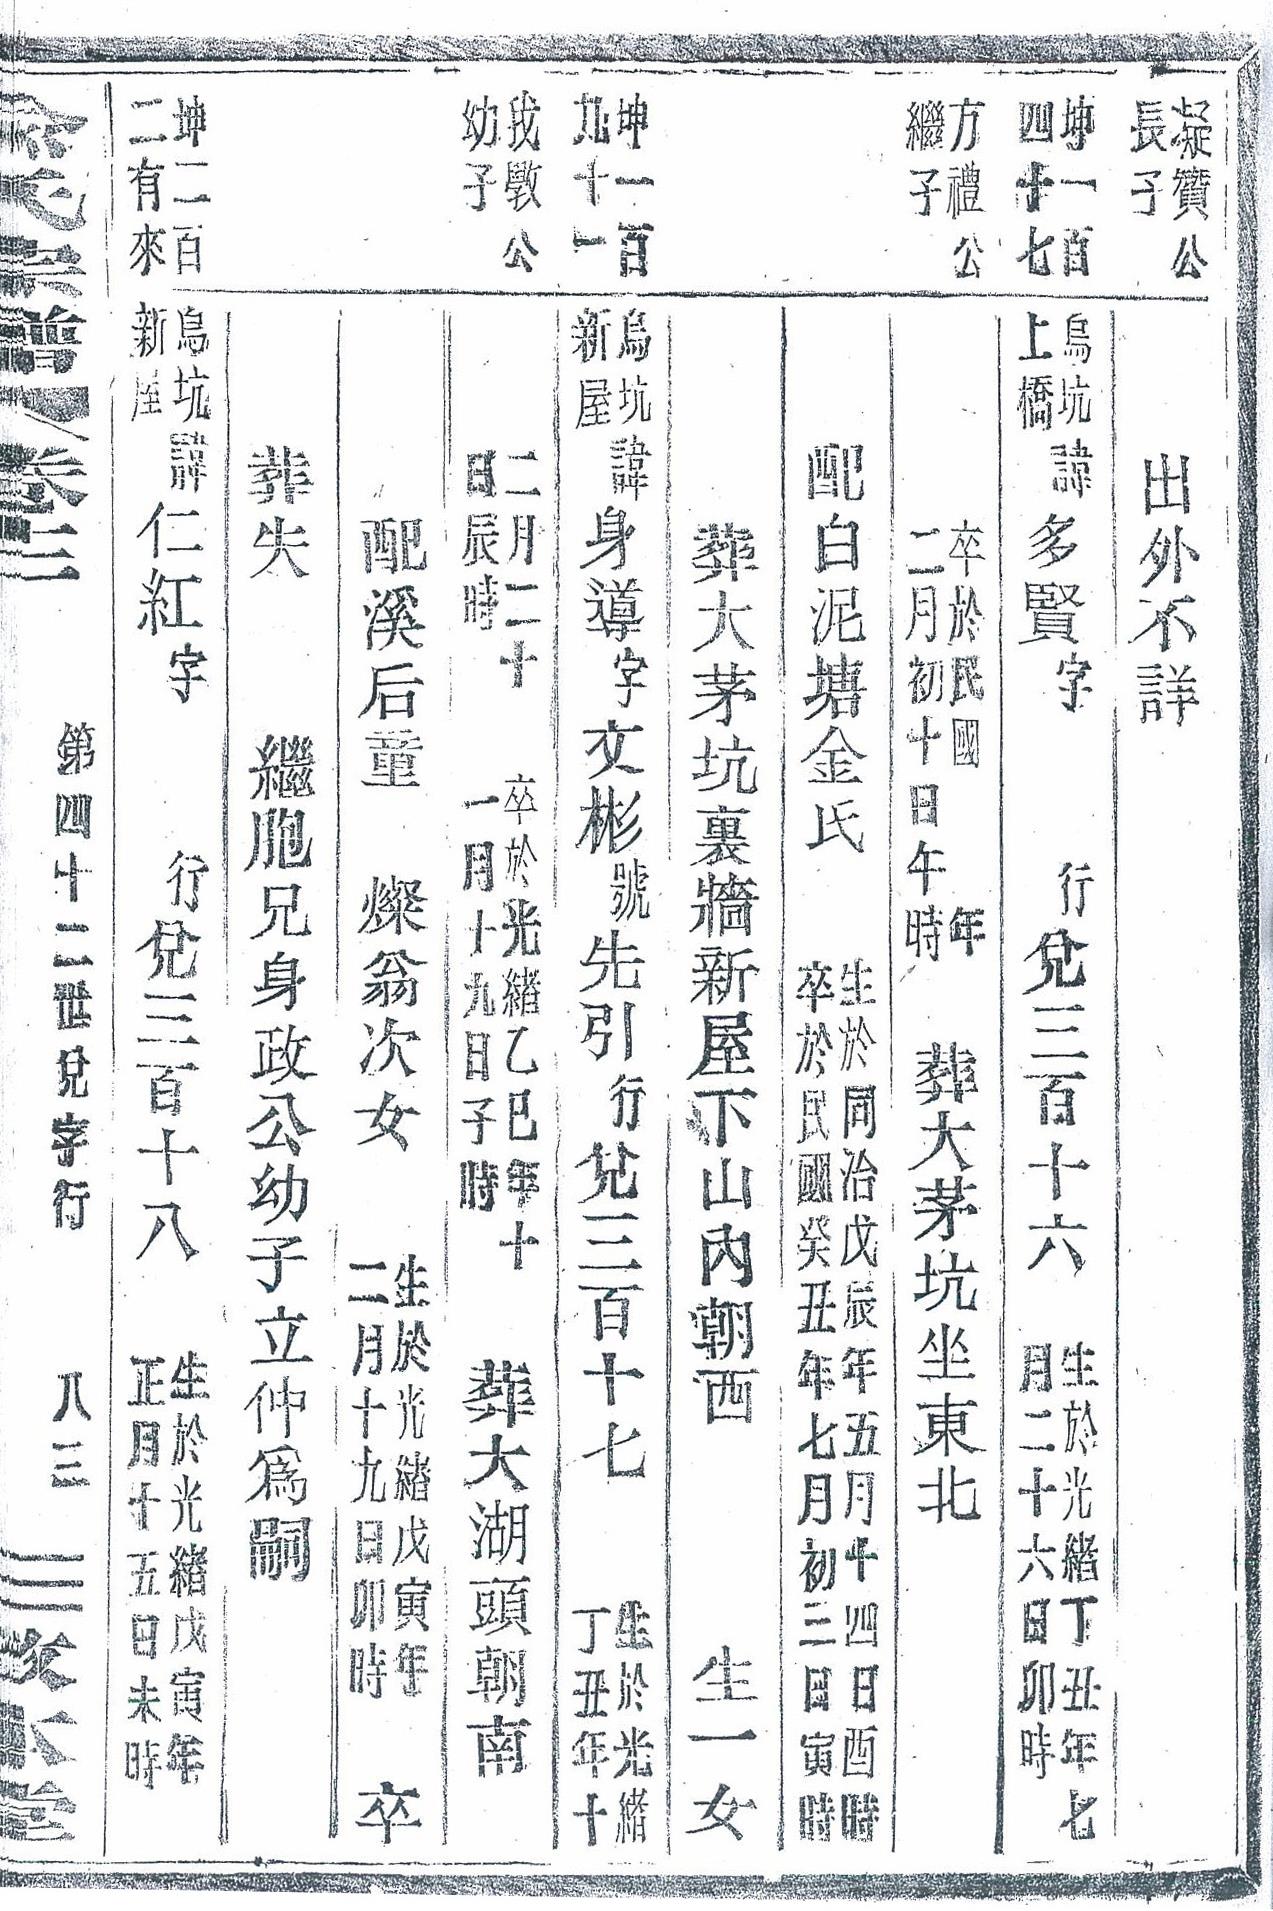 凝贊公
長子
出外不詳
坤一百
四十七
烏坑
上橋
諱多賢字
行兌三百十六
生於光緒丁丑年七
月二十六日卯時
方禮公
繼子
卒於民國 年
二月初十日午時
葬大茅坑坐東北
配白泥塘金氏
生於同治戊辰年五月十四日酉時
卒於民國癸丑年七月初三日寅時
葬大茅坑裏牆新屋下山內朝西
生一女
坤一百
九十一
烏坑
新屋
諱身導字文彬號先引行兌三百十七
生於光緒
丁丑年十
我斅公
幼子
二月二十
日辰時
卒於光緒乙巳年十
一月十九日子時
葬大湖頭朝南
配溪后童 燦翁次女
生於光緒戊寅年
二月十九日卯時
卒
葬失
繼胞兄身政公幼子立仲為嗣
坤二百
二有來
烏坑
新屋
諱仁紅字
行兌三百十八
生於光緒戊寅年
正月十五日未時
宗譜 卷三
第四十二世兌字行
八三